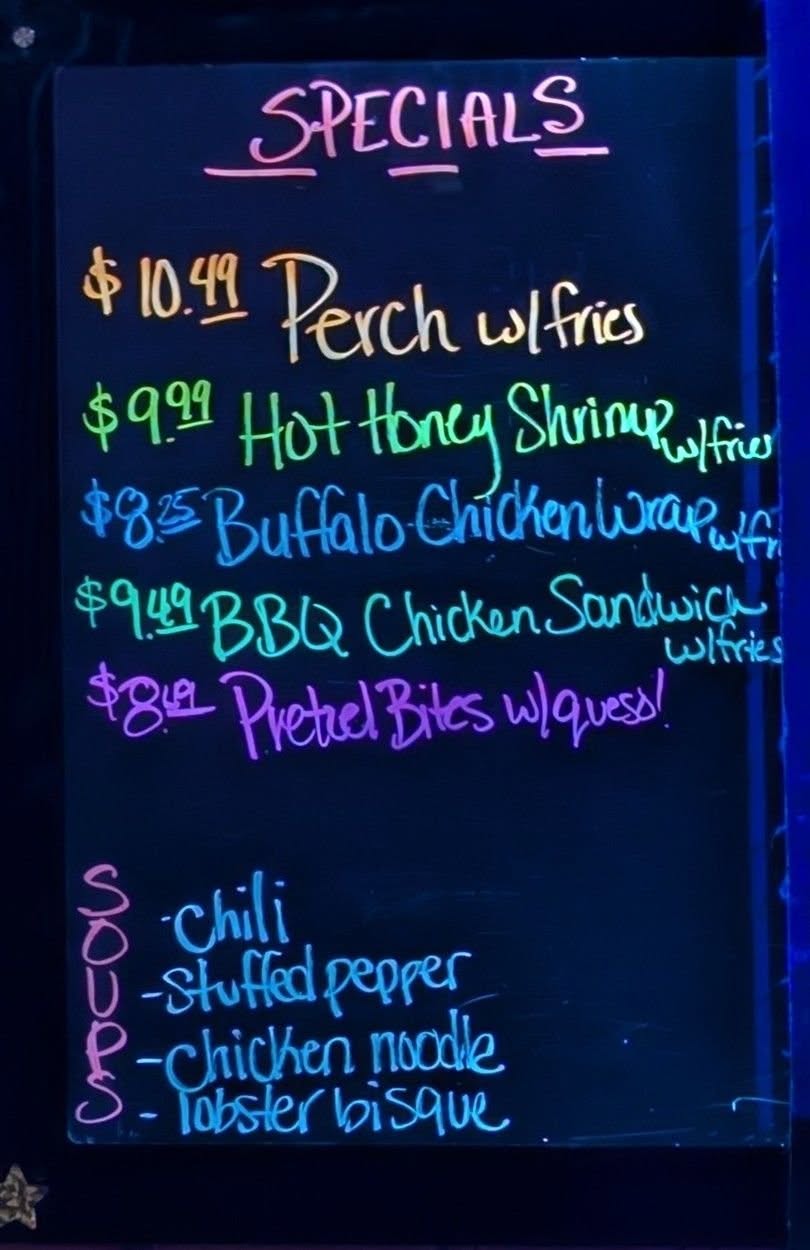 SPECIALS
$10.49 Perch w/fries
$9.99 Hot Honey Shrimp w/fries
$8.25 Buffalo Chicken Wrap w/fr
$9.49 BBQ Chicken Sandwich
w/fries
$8.49 Pretzel Bites w/queso!
SOUPS
-chili
-stuffed pepper
-chicken noodle
-lobster bisque